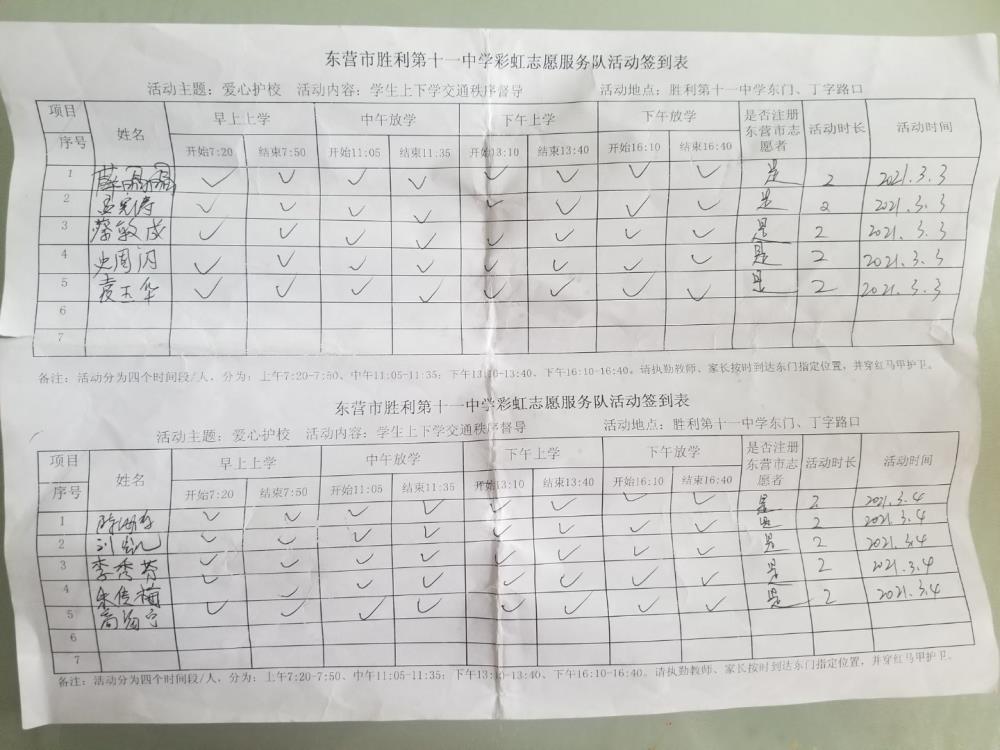 东营市胜利第十一中学彩虹志愿服务队活动签到表
活动主题：爱心护校 活动内容：学生上下学交通秩序督导 活动地点：胜利第十一中学东门、丁字路口
项目 早上上学 中午放学 下午上学 下午放学 是否注册东营市志愿者 活动时长 活动时间
序号 姓名 开始7:20 结束7:50 开始11:05 结束11:35 开始13:10 结束13:40 开始16:10 结束16:40
1 ✓ ✓ ✓ ✓ ✓ ✓ ✓ ✓ 是 2 2021.3.3
2 ✓ ✓ ✓ ✓ ✓ ✓ ✓ ✓ 是 2 2021.3.3
3 蔡敏成 ✓ ✓ ✓ ✓ ✓ ✓ ✓ ✓ 是 2 2021.3.3
4 史周闪 ✓ ✓ ✓ ✓ ✓ ✓ ✓ ✓ 是 2 2021.3.3
5 袁玉华 ✓ ✓ ✓ ✓ ✓ ✓ ✓ ✓ 是 2 2021.3.3
6
7
备注：活动分为四个时间段/人，分为：上午7:20-7:50、中午11:05-11:35；下午13:10-13:40、下午16:10-16:40。请执勤教师、家长按时到达东门指定位置，并穿红马甲护卫。
东营市胜利第十一中学彩虹志愿服务队活动签到表
活动主题：爱心护校 活动内容：学生上下学交通秩序督导 活动地点：胜利第十一中学东门、丁字路口
项目 早上上学 中午放学 下午上学 下午放学 是否注册东营市志愿者 活动时长 活动时间
序号 姓名 开始7:20 结束7:50 开始11:05 结束11:35 开始13:10 结束13:40 开始16:10 结束16:40
1 ✓ ✓ ✓ ✓ ✓ ✓ ✓ ✓ 是 2 2021.3.4
2 ✓ ✓ ✓ ✓ ✓ ✓ ✓ ✓ 是 2 2021.3.4
3 李秀芬 ✓ ✓ ✓ ✓ ✓ ✓ ✓ ✓ 是 2 2021.3.4
4 朱传梅 ✓ ✓ ✓ ✓ ✓ ✓ ✓ ✓ 是 2 2021.3.4
5 ✓ ✓ ✓ ✓ ✓ ✓ ✓ ✓ 是 2 2021.3.4
6
7
备注：活动分为四个时间段/人，分为：上午7:20-7:50、中午11:05-11:35；下午13:10-13:40、下午16:10-16:40。请执勤教师、家长按时到达东门指定位置，并穿红马甲护卫。